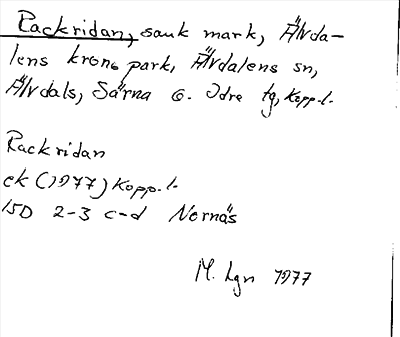 Rackridan, sank mark, Älvda-
lens krono park, Älvdalens sn,
Älvdals, Särna o. Idre tg, Kopp.l.
Rackridan
ek (1977) Kopp.l.
15D 2-3 c-d Nornäs
M. Lgn 1977